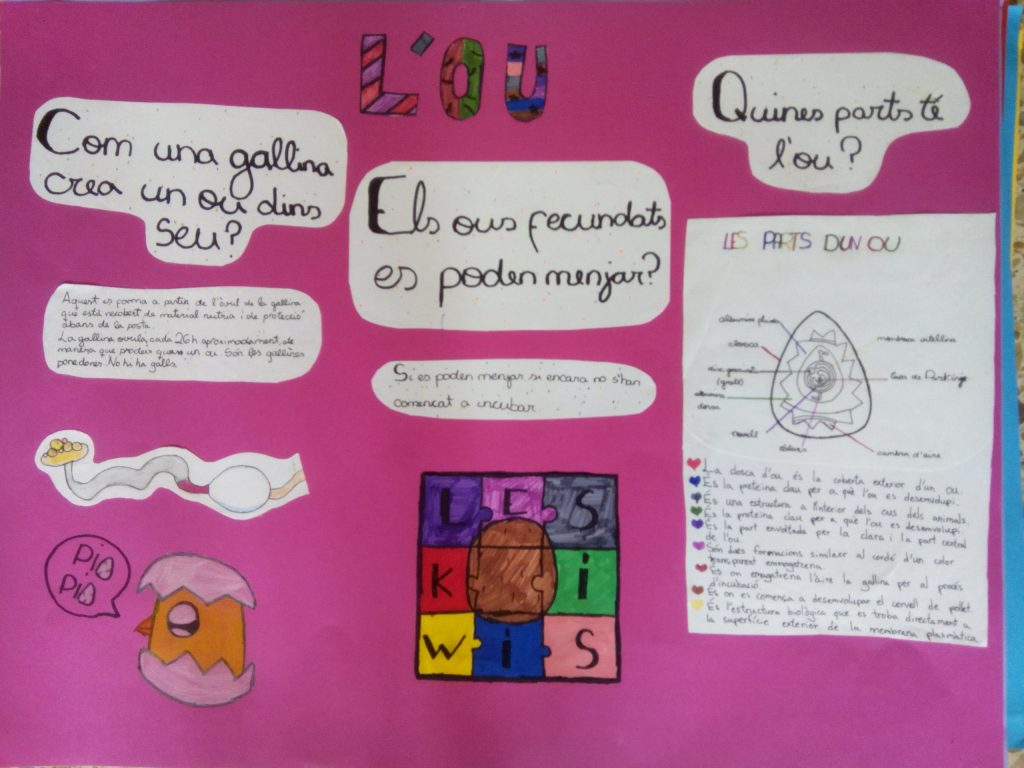 L'OU
Com una gallina
crea un ou dins
seu?
Aquest es forma a partir de l'òvul de la gallina
que està recobert de material nutria i de protecció
abans de la posta.
La gallina ovula cada 26h aproximadament, de
manera que produix quasi un ou. Són les gallines
ponedores. No hi ha galls.
PiO
PiO
Els ous fecundats
es poden menjar?
Si es poden menjar si encara no s'han
començat a incubar.
LES
Ki
WiS
Quines parts té
l'ou?
LES PARTS DUN OU
albumina fluida
closca
disc germinal
(grall)
albumina
densa
rovell
membrana vitel·lina
cambra d'aire
La closca d'ou és la coberta exterior d'un ou.
És la proteina clau per a què l'ou es desenvolupi.
És una estructura a l'interior dels ous dels animals.
És la proteina clau per a què l'ou es desenvolupi.
És la part envoltada per la clara i la part central
de l'ou.
Són dues formacions similar al cordó d'un color
transparent
És on emagatzema l'aire la gallina per al procés
d'incubació.
És on es comença a desenvolupar el cervell de pollet.
És l'estructura biològica que es troba directament a
la superfície exterior de la membrana plasmàtica